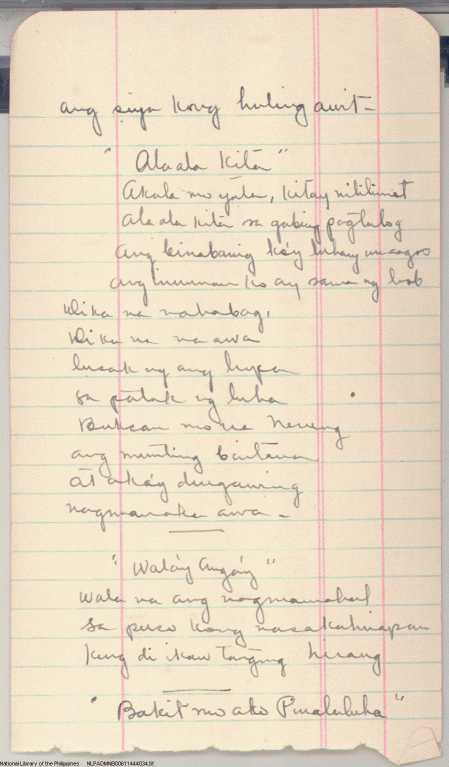 ang siya kong huling awit -
"Alaala Kita"
Akala mo yata, kita'y nililimot
Alaala kita sa gabing pagtulog
Ang binabanig ko'y luhang umaagos
ang inuunan ko ay sama ng loob
Di ka na nahabag,
Di ka na naawa
lusak ng ang lupa
sa patak ng luha
Buksan mo na Neneng
ang munting bintana
At ako'y dungawing
nagmamakaawa -
"Wala'y Angay"
Wala na ang nagmamahal
Sa puso kong nasa kahirapan
kung di ikaw tanging hirang
"Bakit mo ako Pinaluluha"
National Library of the Philippines NLPADMNB00611444034.tif